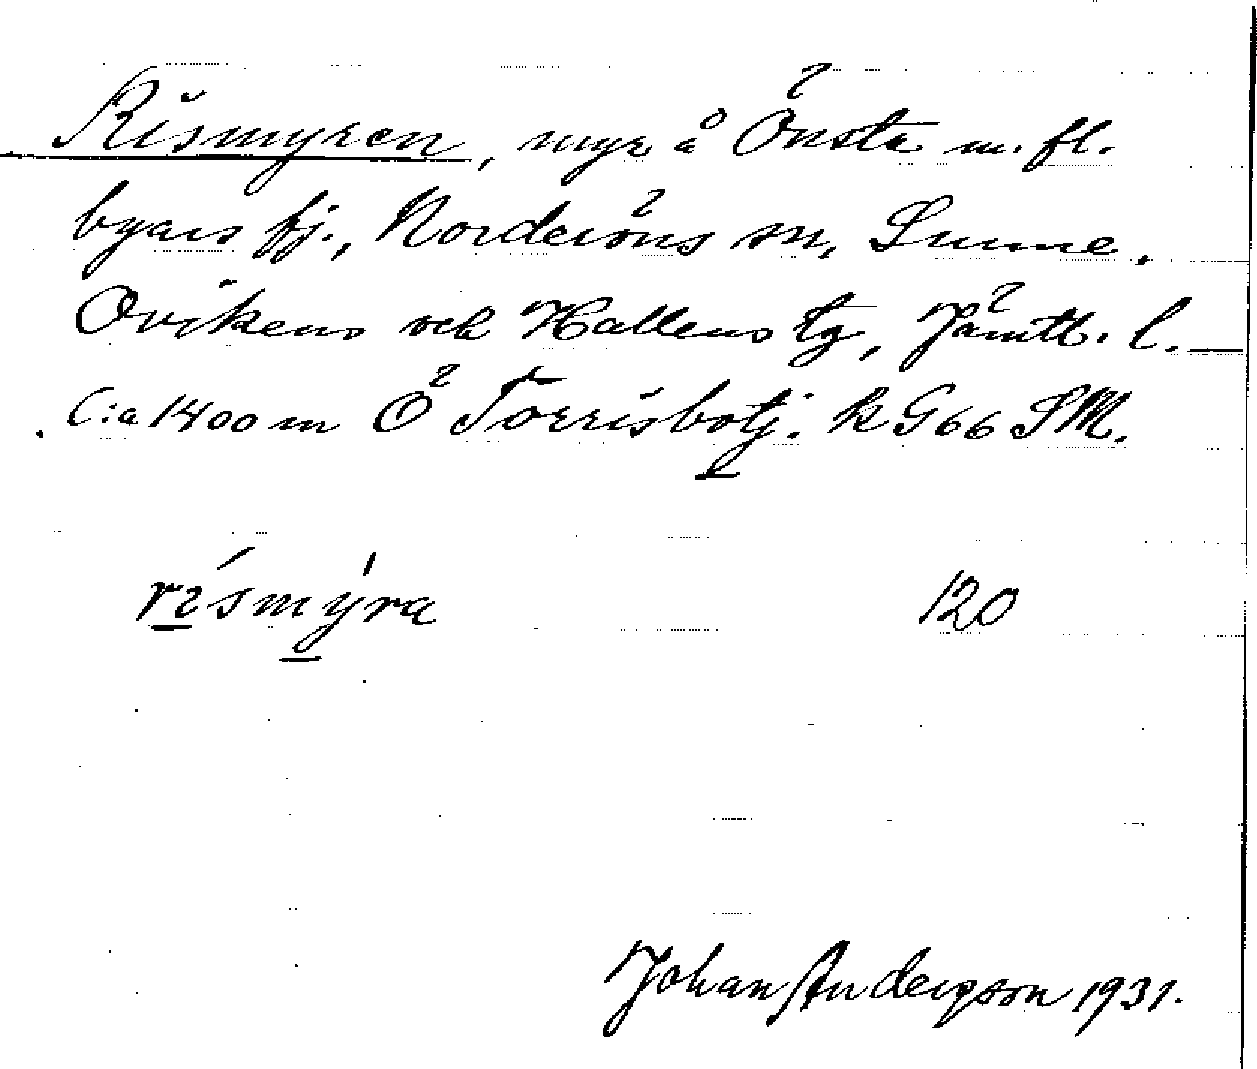 Rismyren, myr å Önsta m. fl.
byars fj., Norderöns sn, Sunne,
Ovikens och Hallens tg, Jämtl. l.
C:a 1400 m Ö Torrisbotj. k G66 SM.
rísmýra 120
Johan Anderson 1931.